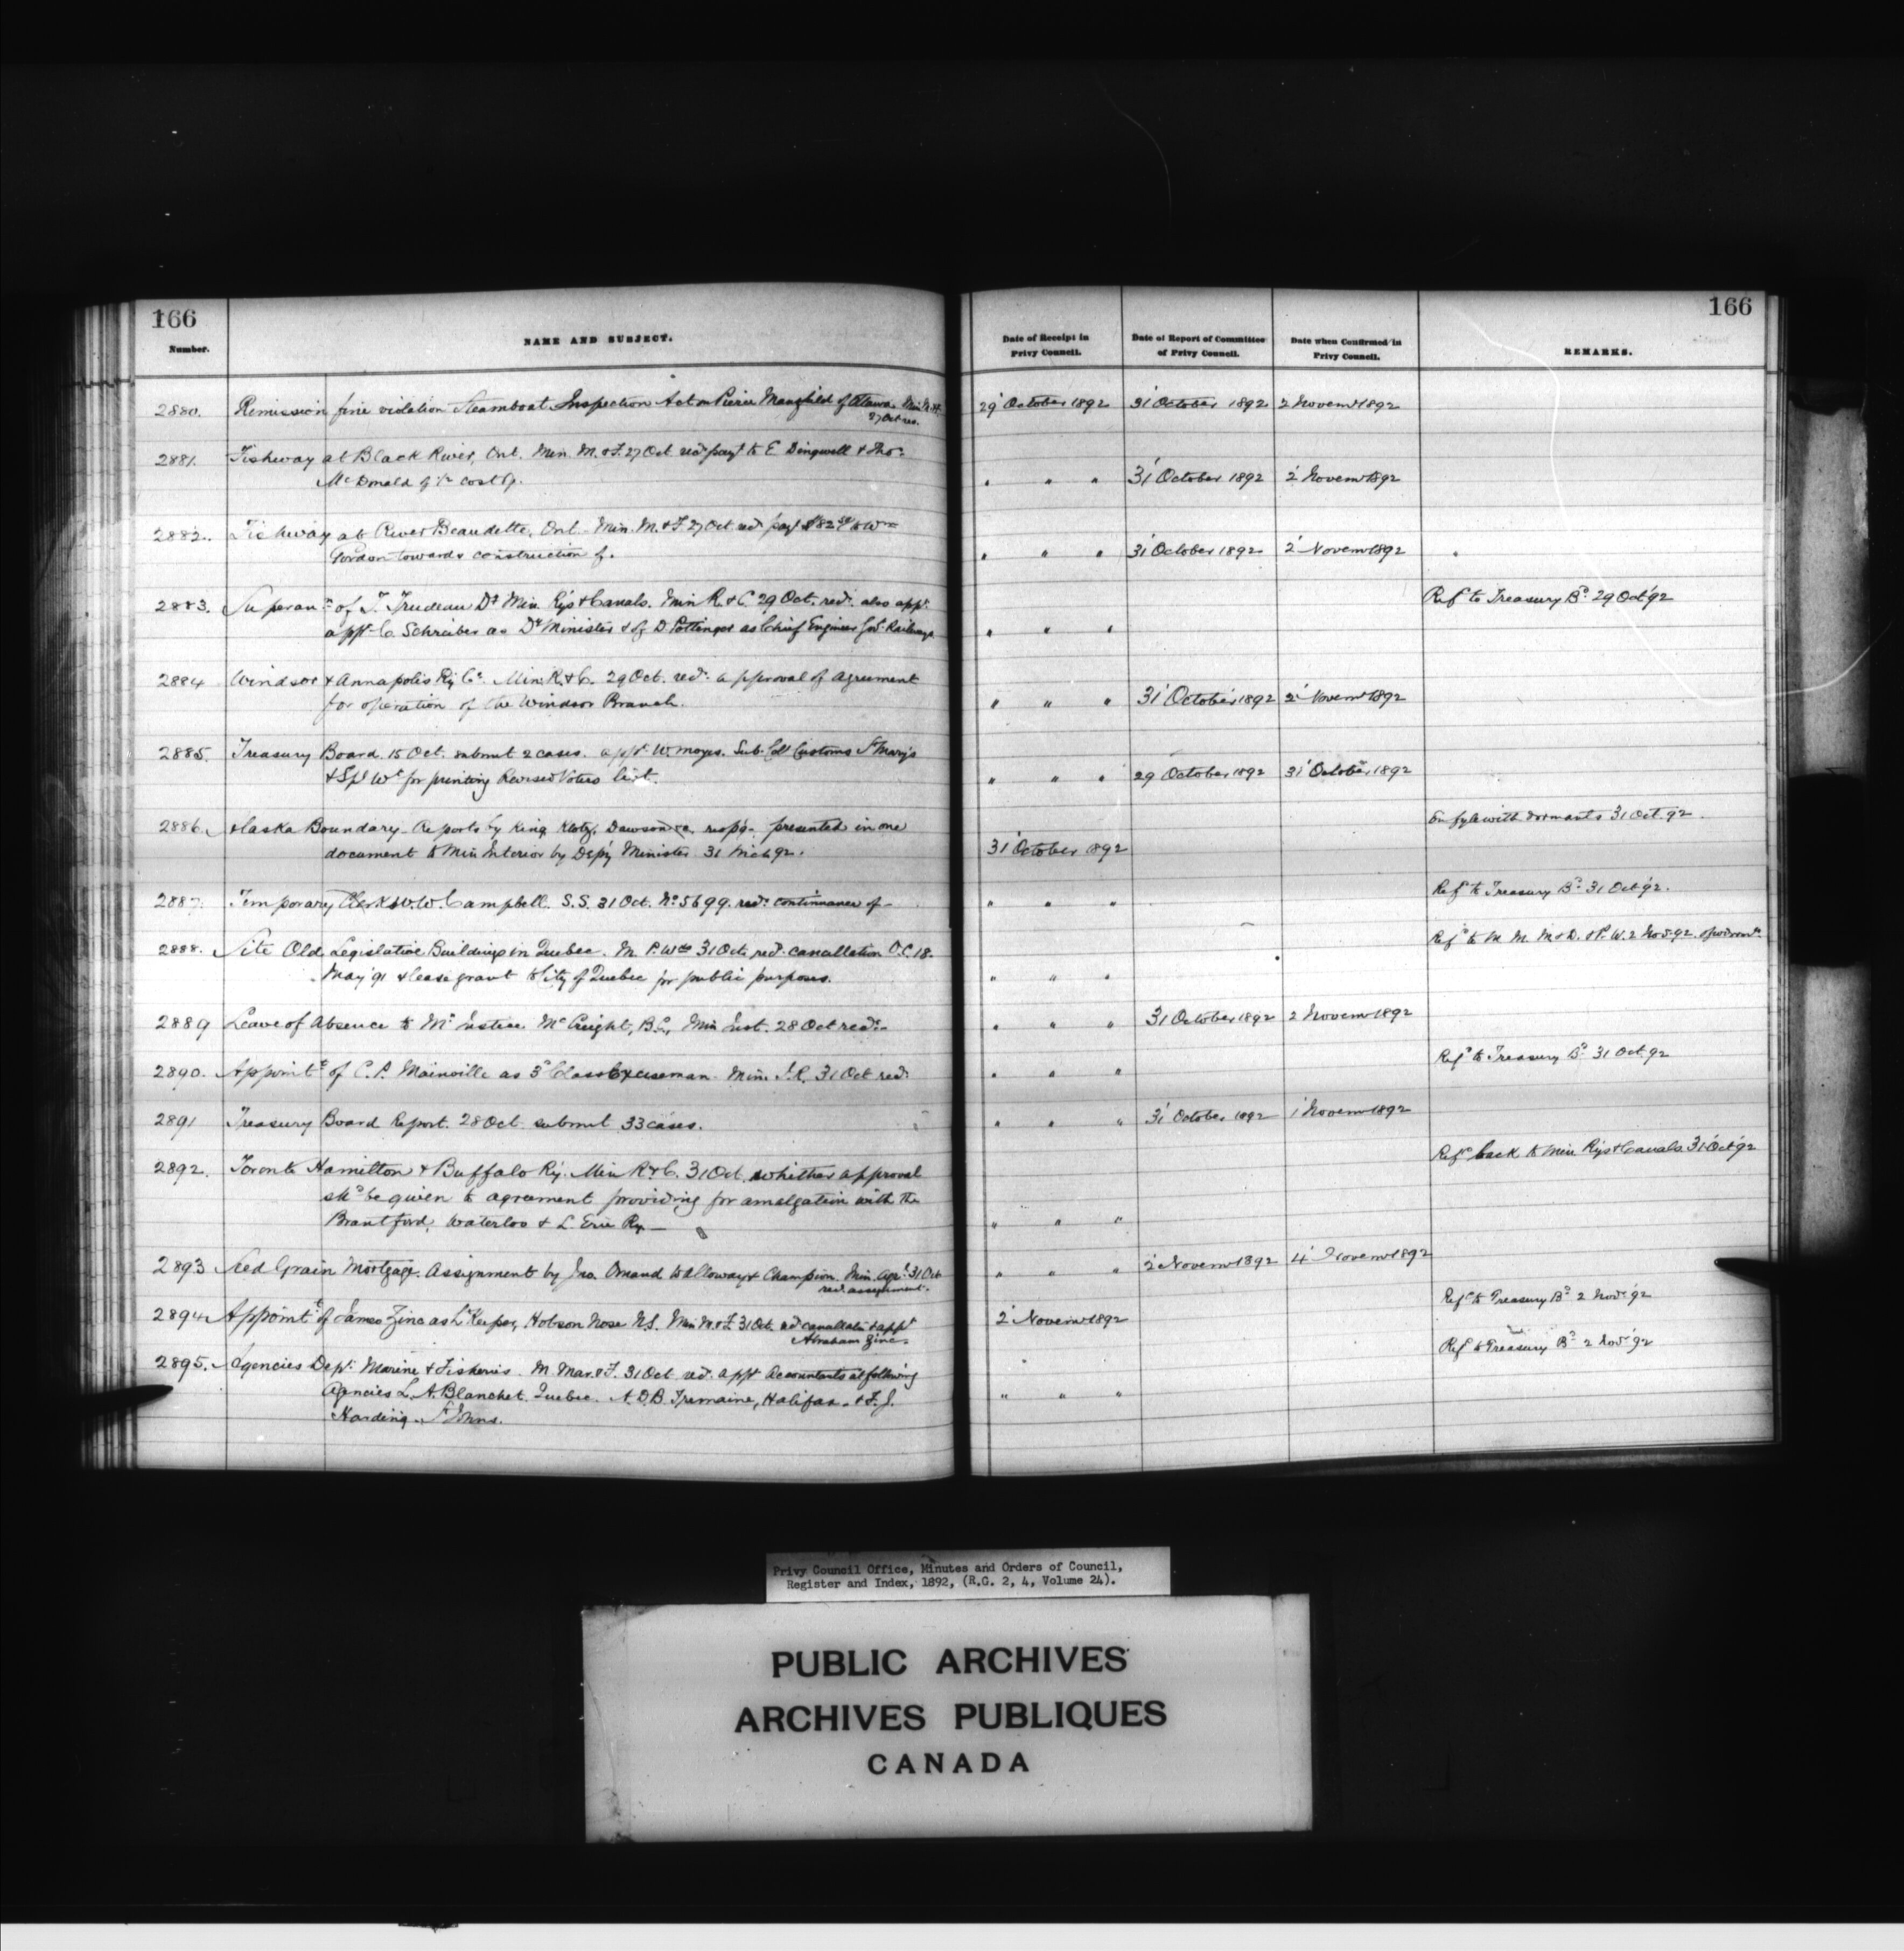 166
Number.
NAME AND SUBJECT.
Date of Receipt in Privy Council.
Date of Report of Committee of Privy Council.
Date when Confirmed in Privy Council.
REMARKS.
166
2880. Remission fine violation Steamboat Inspection Act on Pierre of Ottawa. Min M & F. 29' October 1892 31' October 1892 2 Novemr 1892
27 Oct rec.
2881. Fishway at Black River, Ont. Min. M. & F. 27 Oct recd payt to E Dingwall & Thos
McDonald of ½ cost of. " " " 31' October 1892 2' Novemr 1892
2882. Fishway at River Beaudette, Ont. Min. M. & F. 27 Oct recd payt to Wm
Gordon towards construction of. " " " 31' October 1892 2' Novemr 1892
2883. Superann of T. Trudeau Dy Min Rys & Canals. Min R. & C. 29 Oct. recd. also appt Refd to Treasury Bd 29 Oct '92
appt C. Schreiber as Dy Minister & of D Pottinger as Chief Engineer Govt Railways " " "
2884 Windsor & Annapolis Ry Co. Min. R. & C. 29 Oct. recd. approval of agreement
for operation of the Windsor Branch. " " " 31' October 1892 2' Novemr 1892
2885. Treasury Board 15 Oct. submit 2 cases. appt W. Moyes. Sub. Coll Customs St Marys
& Spl Wt for printing Revised Voters list. " " " 29 October 1892 31' October 1892
2886. Alaska Boundary - Reports by King, Klotz, Dawson &c. presented in one On fyle with dormants 31 Oct. 92.
document to Min Interior by Depy Minister 31 Mch 92. 31' October 1892
2887. Temporary Clerk W. W. Campbell. S.S. 31 Oct. No 5699. recd. continuance of - " " " Refd to Treasury Bd. 31 Oct '92.
2888. Site Old Legislative Buildings in Quebec. M. P. Wks 31 Oct. recd. cancellation O.C. 18. Refd to M. M. M & D. & P. W. 2 Nov. 92.
May '91 & lease grant to City of Quebec for public purposes. " " "
2889 Leave of Absence to Mr Justice McCreight, B.C., Min Just. 28 Oct recd. " " " 31 October 1892 2 Novemr 1892
2890. Appointt of C. P. Mainville as 3d Class Exciseman. Min. I.R. 31 Oct recd. " " " Refd to Treasury Bd. 31 Oct. 92
2891 Treasury Board Report. 28 Oct submit 33 cases. " " " 31' October 1892 1' Novemr 1892
2892. Toronto Hamilton & Buffalo Ry. Min R & C. 31 Oct. whither approval Refd back to Min Rys & Canals 31 Oct '92
shd be given to agreement providing for amalgation with the
Brantford, Waterloo & L. Erie Ry — " " "
2893 Seed Grain Mortgage. Assignment by Jno. Omand to Alloway & Champion. Min. Agr. 31 Oct " " " 2' Novemr 1892 4' Novemr 1892
recd. assignment.
2894 Appointt of James Zinc as Lt Keeper, Hobson Nose N.S. Min M. & F. 31 Oct. recd cancellation & appt 2' Novemr 1892 Refd to Treasury Bd 2 Nov. '92
Abraham Zinc.
2895. Agencies Dept Marine & Fisheries. M. Mar. & F. 31 Oct recd. appt Accountants at following Refd to Treasury Bd 2 Nov. '92
Agencies L. A. Blanchet. Quebec. A. D. B. Tremaine, Halifax, & F. J. " " "
Harding. St Johns.
Privy Council Office, Minutes and Orders of Council,
Register and Index, 1892, (R.G. 2, 4, Volume 24).
PUBLIC ARCHIVES
ARCHIVES PUBLIQUES
CANADA